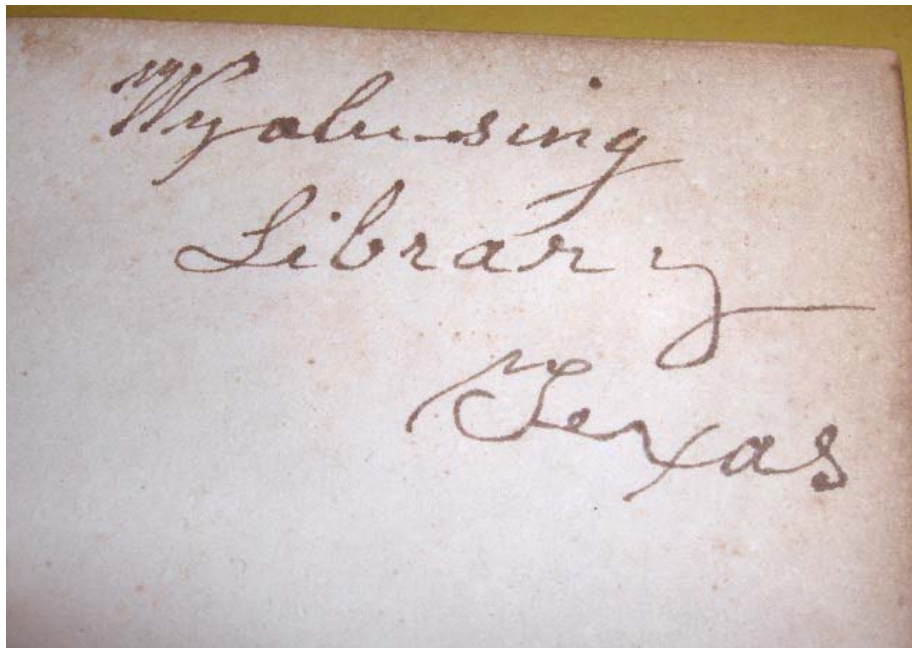 Wyalusing
Library
Texas